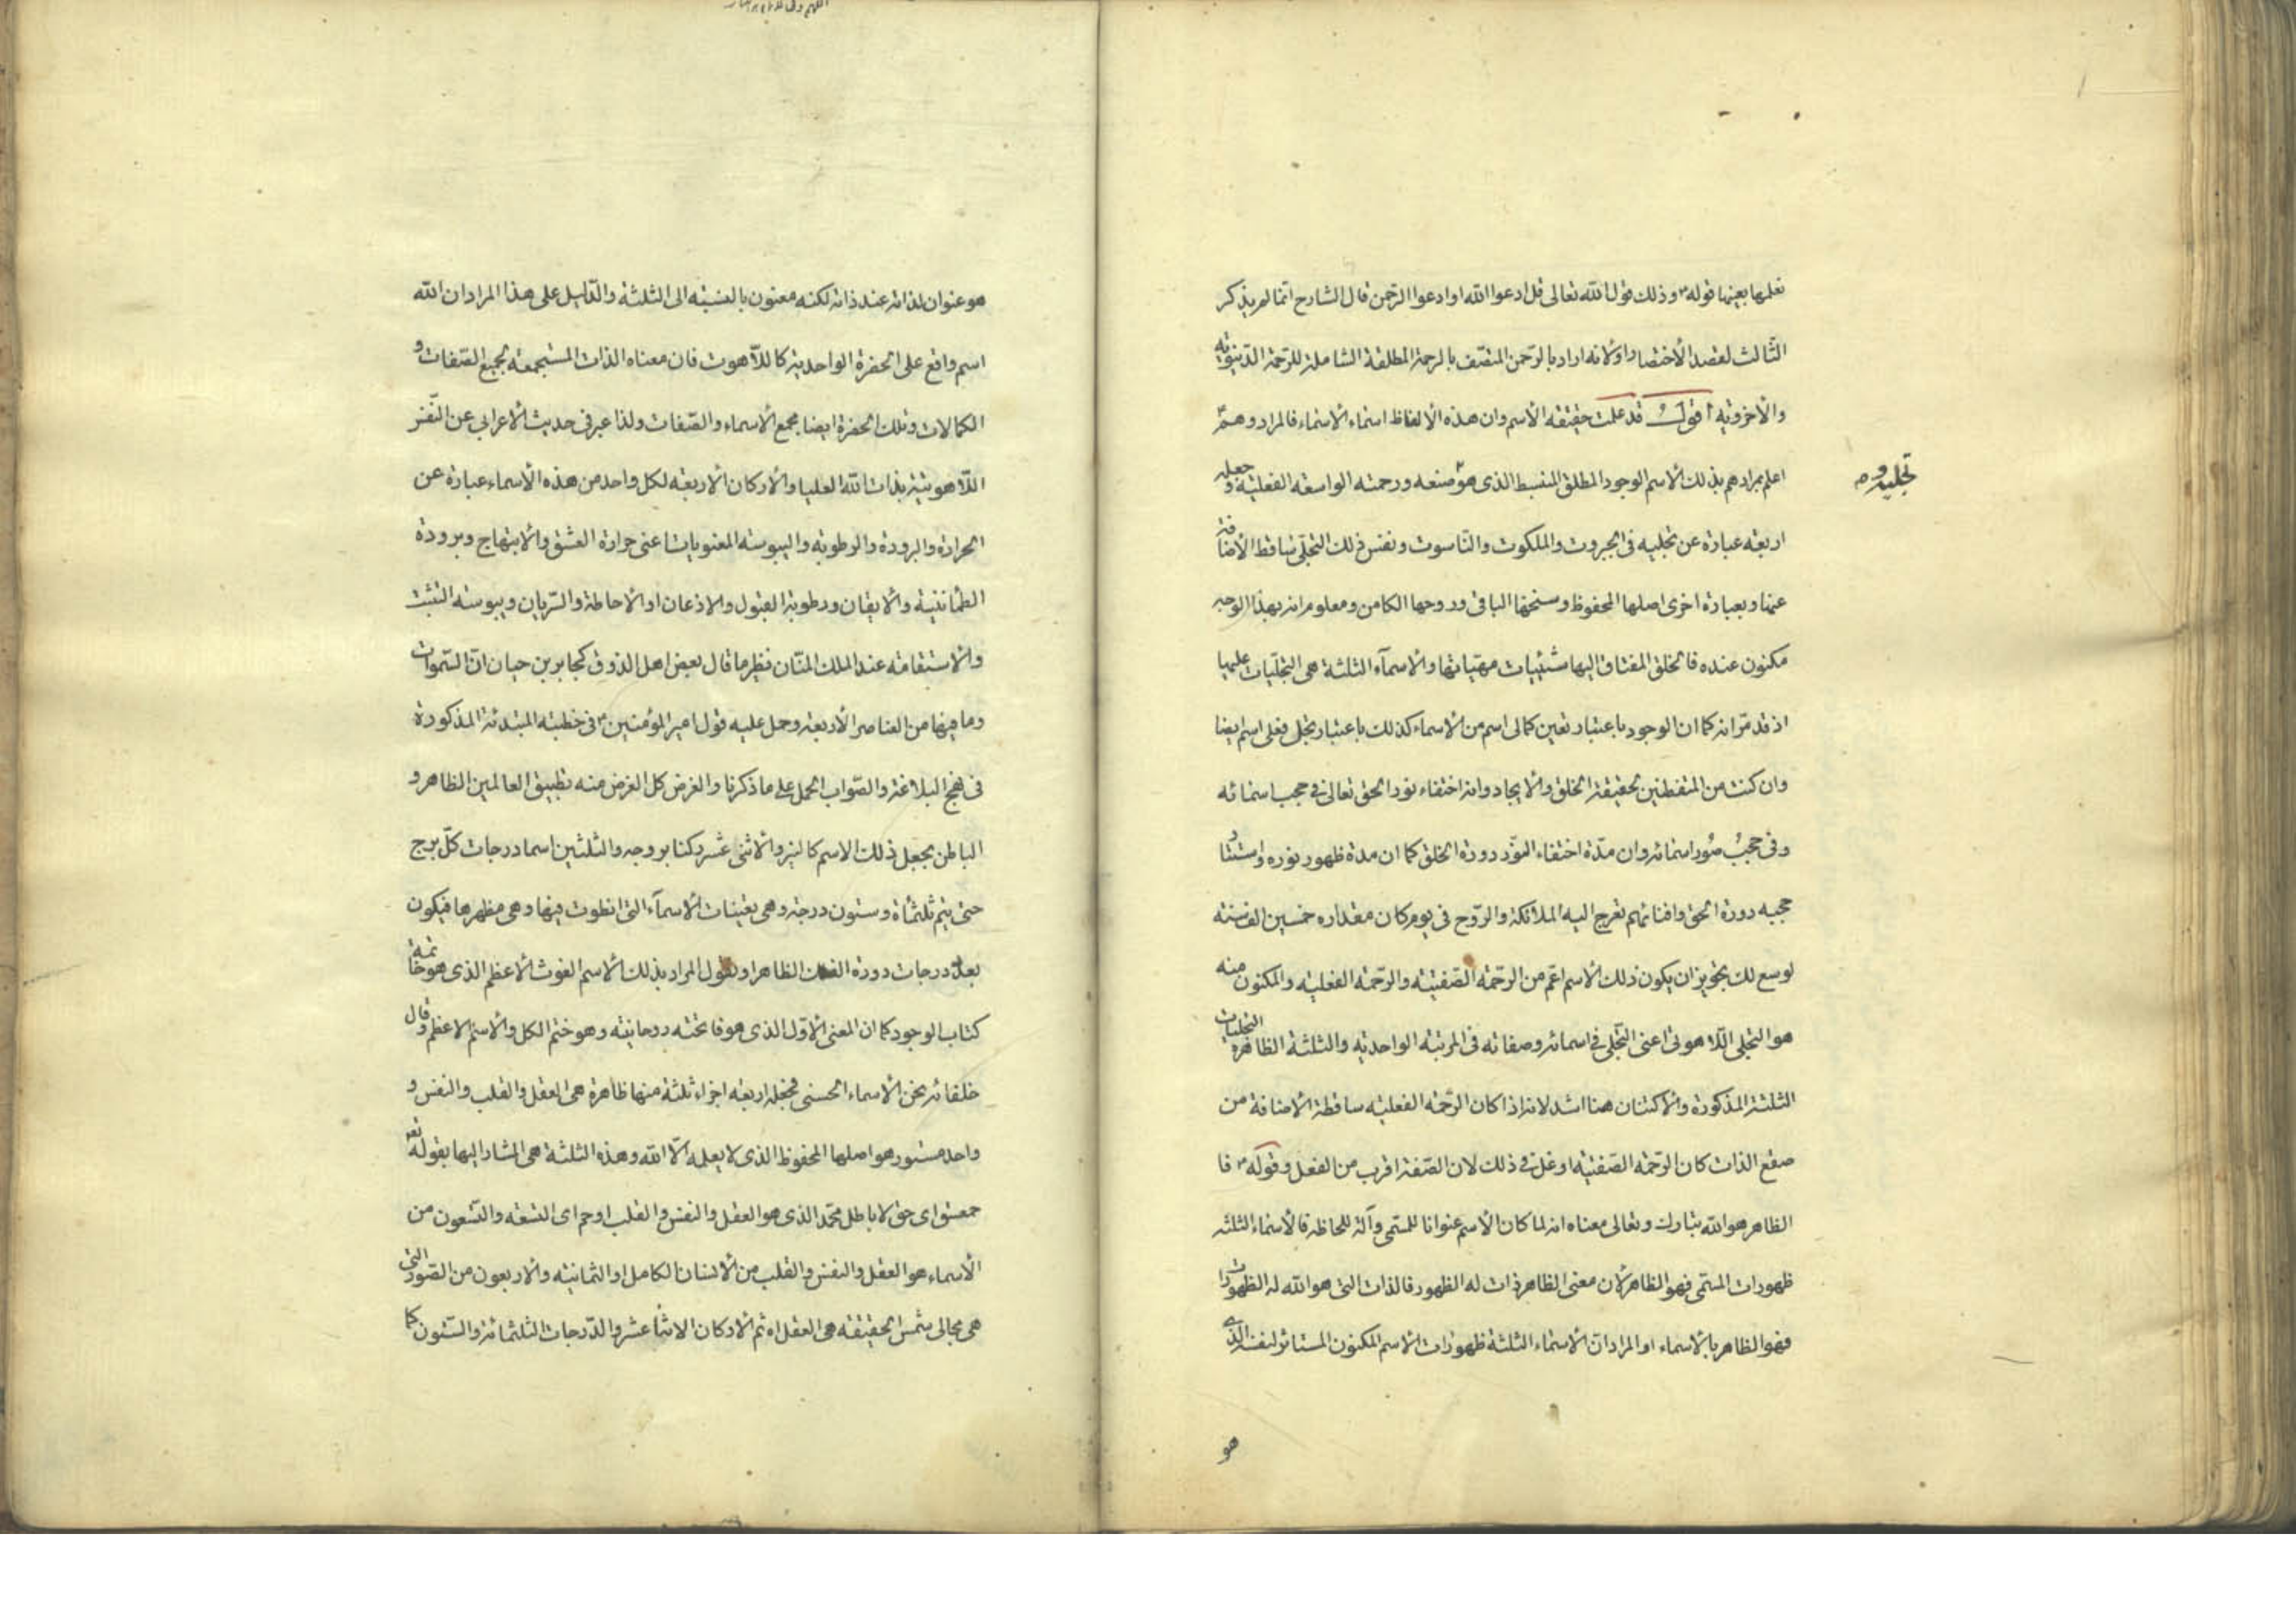 نعلمها بعينها قوله ٤ وذلك قول الله تعالى قل ادعوا الله او ادعوا الرحمن قال الشارح انما لم يذكر
الثالث لقصد الاختصار او لانه اراد بالرحمن المتصف بالرحمة المطلقة الشاملة للرحمة الدنيوية
والاخروية اقول قد علمت حقيقة الاسم وان هذه الالفاظ اسماء الاسماء فالمراد وهم
اعلم بمرادهم بذلك الاسم الوجود المطلق المنبسط الذى هو صنعه ورحمته الواسعة الفعلية وجعله
تجليه و
اربعة عبارة عن تجليه فى الجبروت والملكوت والناسوت ونفس ذلك التجلى ساقط الاضافة
عنها وبعبارة اخرى اصلها المحفوظ وسنخها الباقى وروحها الكامن ومعلوم انه بهذا الوجه
مكنون عنده فالخلق المفتاق اليها شيئيات مهياتها والاسمآء الثلثة هى التجليات عليها
اذ قد مر انه كما ان الوجود باعتبار تعين كمالى اسم من الاسماء كذلك باعتبار تجل فعلى اسم ايضا
وان كنت من المتفطنين لحقيقة الخلق والايجاد وانه اختفاء نور الحق تعالى فى حجب اسمائه
وفى حجب صور اسمائه وان مدة اختفاء النور دورة الخلق كما ان مدة ظهور نوره واستتار
حجبه دورة الحق وافنائهم تعرج اليه الملائكة والروح فى يوم كان مقداره خمسين الف سنة
لوسع لك تجويز ان يكون ذلك الاسم اعم من الرحمة الصفتية والرحمة الفعلية والمكنون منه
هو التجلى اللاهوتى اعنى التجلى فى اسمائه وصفاته فى المرتبة الواحدية والثلثة الظاهرة التجليات
الثلثة المذكورة والاكتنان هنا اشد لانه اذا كان الرحمة الفعلية ساقطة الاضافة من
صقع الذات كان الرحمة الصفتية اوغل فى ذلك لان الصفة اقرب من الفعل وقوله ٤ فا
الظاهر هو الله تبارك وتعالى معناه انه لما كان الاسم عنوانا للمسمى وآلة للحاظه فالاسماء الثلثة
ظهورات المسمى فهو الظاهر لان معنى الظاهر ذات له الظهور فالذات التى هو الله له الظهورات
فهو الظاهر بالاسماء او المراد ان الاسماء الثلثة ظهورات الاسم المكنون المستاثر لنفسه الذى
هو
هو عنوان لذاته عند ذاته لكنه معنون بالنسبة الى الثلثة والدليل على هذا المراد ان الله
اسم واقع على الحضرة الواحدية كاللاهوت فان معناه الذات المستجمعة لجميع الصفات و
الكمالات وتلك الحضرة ايضا مجمع الاسماء والصفات ولذا عبر فى حديث الاعرابى عن النفس
اللاهوتية بذات الله العليا والاركان الاربعة لكل واحد من هذه الاسماء عبارة عن
الحرارة والبرودة والرطوبة واليبوسة المعنويات اعنى حرارة العشق والابتهاج وبرودة
الطمانينة والايقان ورطوبة القبول والاذعان او الاحاطة والسريان ويبوسة التثبت
والاستقامة عند الملك المنان نظير ما قال بعض اهل الذوق كجابر بن حيان ان السموات
وما فيها من العناصر الاربعة وحمل عليه قول امير المؤمنين ٤ فى خطبته المبتدئة المذكورة
فى نهج البلاغة والصواب الحمل على ما ذكرنا والغرض كل الغرض منه تطبيق العالمين الظاهر و
الباطن بجعل ذلك الاسم كالنير والاثنى عشر ركنا بروجه والثلثين اسما درجات كل برج
حتى يتم ثلثمأة وستون درجة وهى تعينات الاسمآء التى انطوت فيها وهى مظهرها فيكون
بعدد درجات دورة الفلك الظاهر او نقول المراد بذلك الاسم الغوث الاعظم الذى هو خاتمة
كتاب الوجود كما ان المعنى الاول الذى هو فاتحته روحانيته وهو ختم الكل والاسم الاعظم وقال
خلفائه نحن الاسماء الحسنى فجعله اربعة اجزاء ثلثة منها ظاهرة هى العقل والقلب والنفس و
واحد مستور هو اصلها المحفوظ الذى لا يعلمه الا الله وهذه الثلثة هى المشار اليها بقوله تعه
حمعسق اى حق لا باطل محمد الذى هو العقل والنفس والقلب او حم اى التسعة والتسعون من
الاسماء هو العقل والنفس والقلب من الانسان الكامل او الثمانية والاربعون من الصور التى
هى مجالى شمس الحقيقة هى العقل اه ثم الاركان الاثنا عشر والدرجات الثلثمائة والستون كما